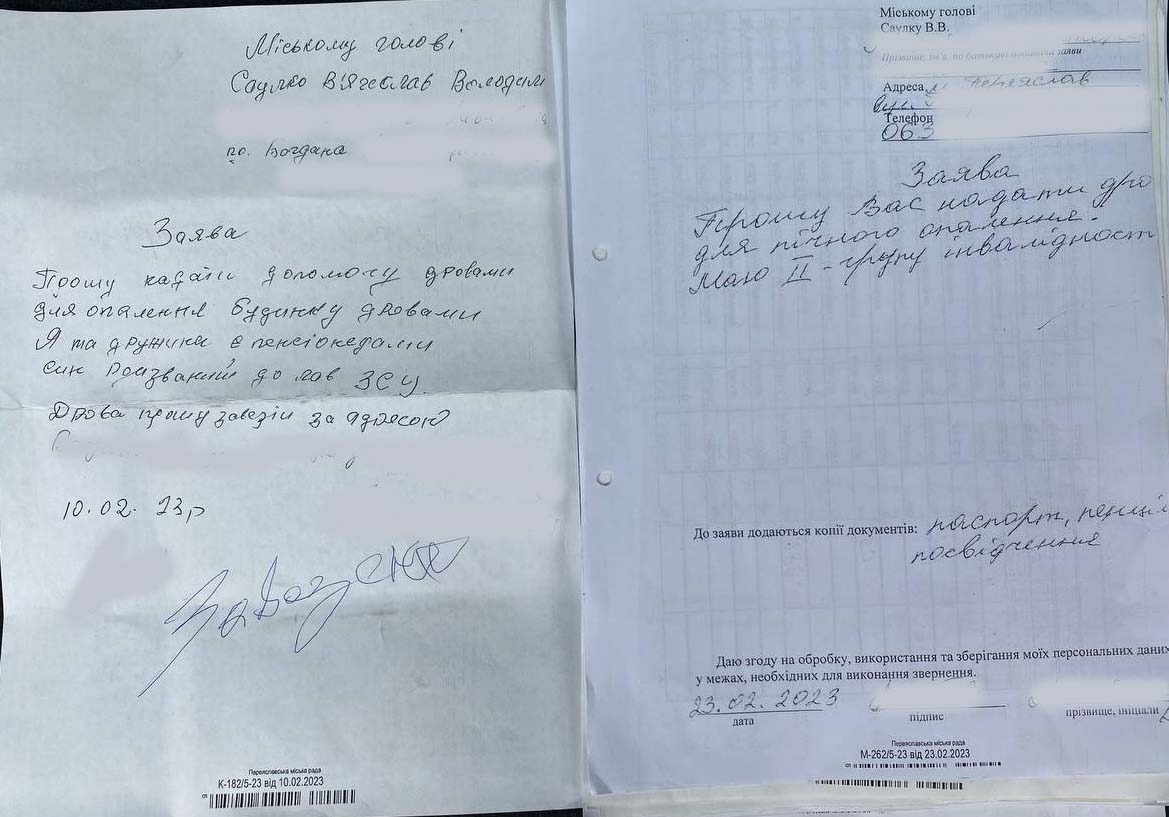 Міському голові
Саулко В'ячеслав Володим
по. Богдана
Заява
Прошу надати допомогу дровами
для опалення будинку дровами
Я та дружина є пенсіонерами
син призваний до лав ЗСУ.
Дрова прошу завезти за адресою
10.02. 23р
Переяславська міська рада
К-182/5-23 від 10.02.2023
Міському голові
Саулку В.В.
Прізвище, ім'я, по батькові подавача заяви
Адреса м. Переяслав
Телефон
063
Заява
Прошу Вас надати дро
для пічного опалення.
Маю ІІ - групу інвалідност
До заяви додаються копії документів: паспорт,
посвідчення
Даю згоду на обробку, використання та зберігання моїх персональних даних
у межах, необхідних для виконання звернення.
23.02.2023
дата
підпис
прізвище, ініціали
Переяславська міська рада
М-262/5-23 від 23.02.2023